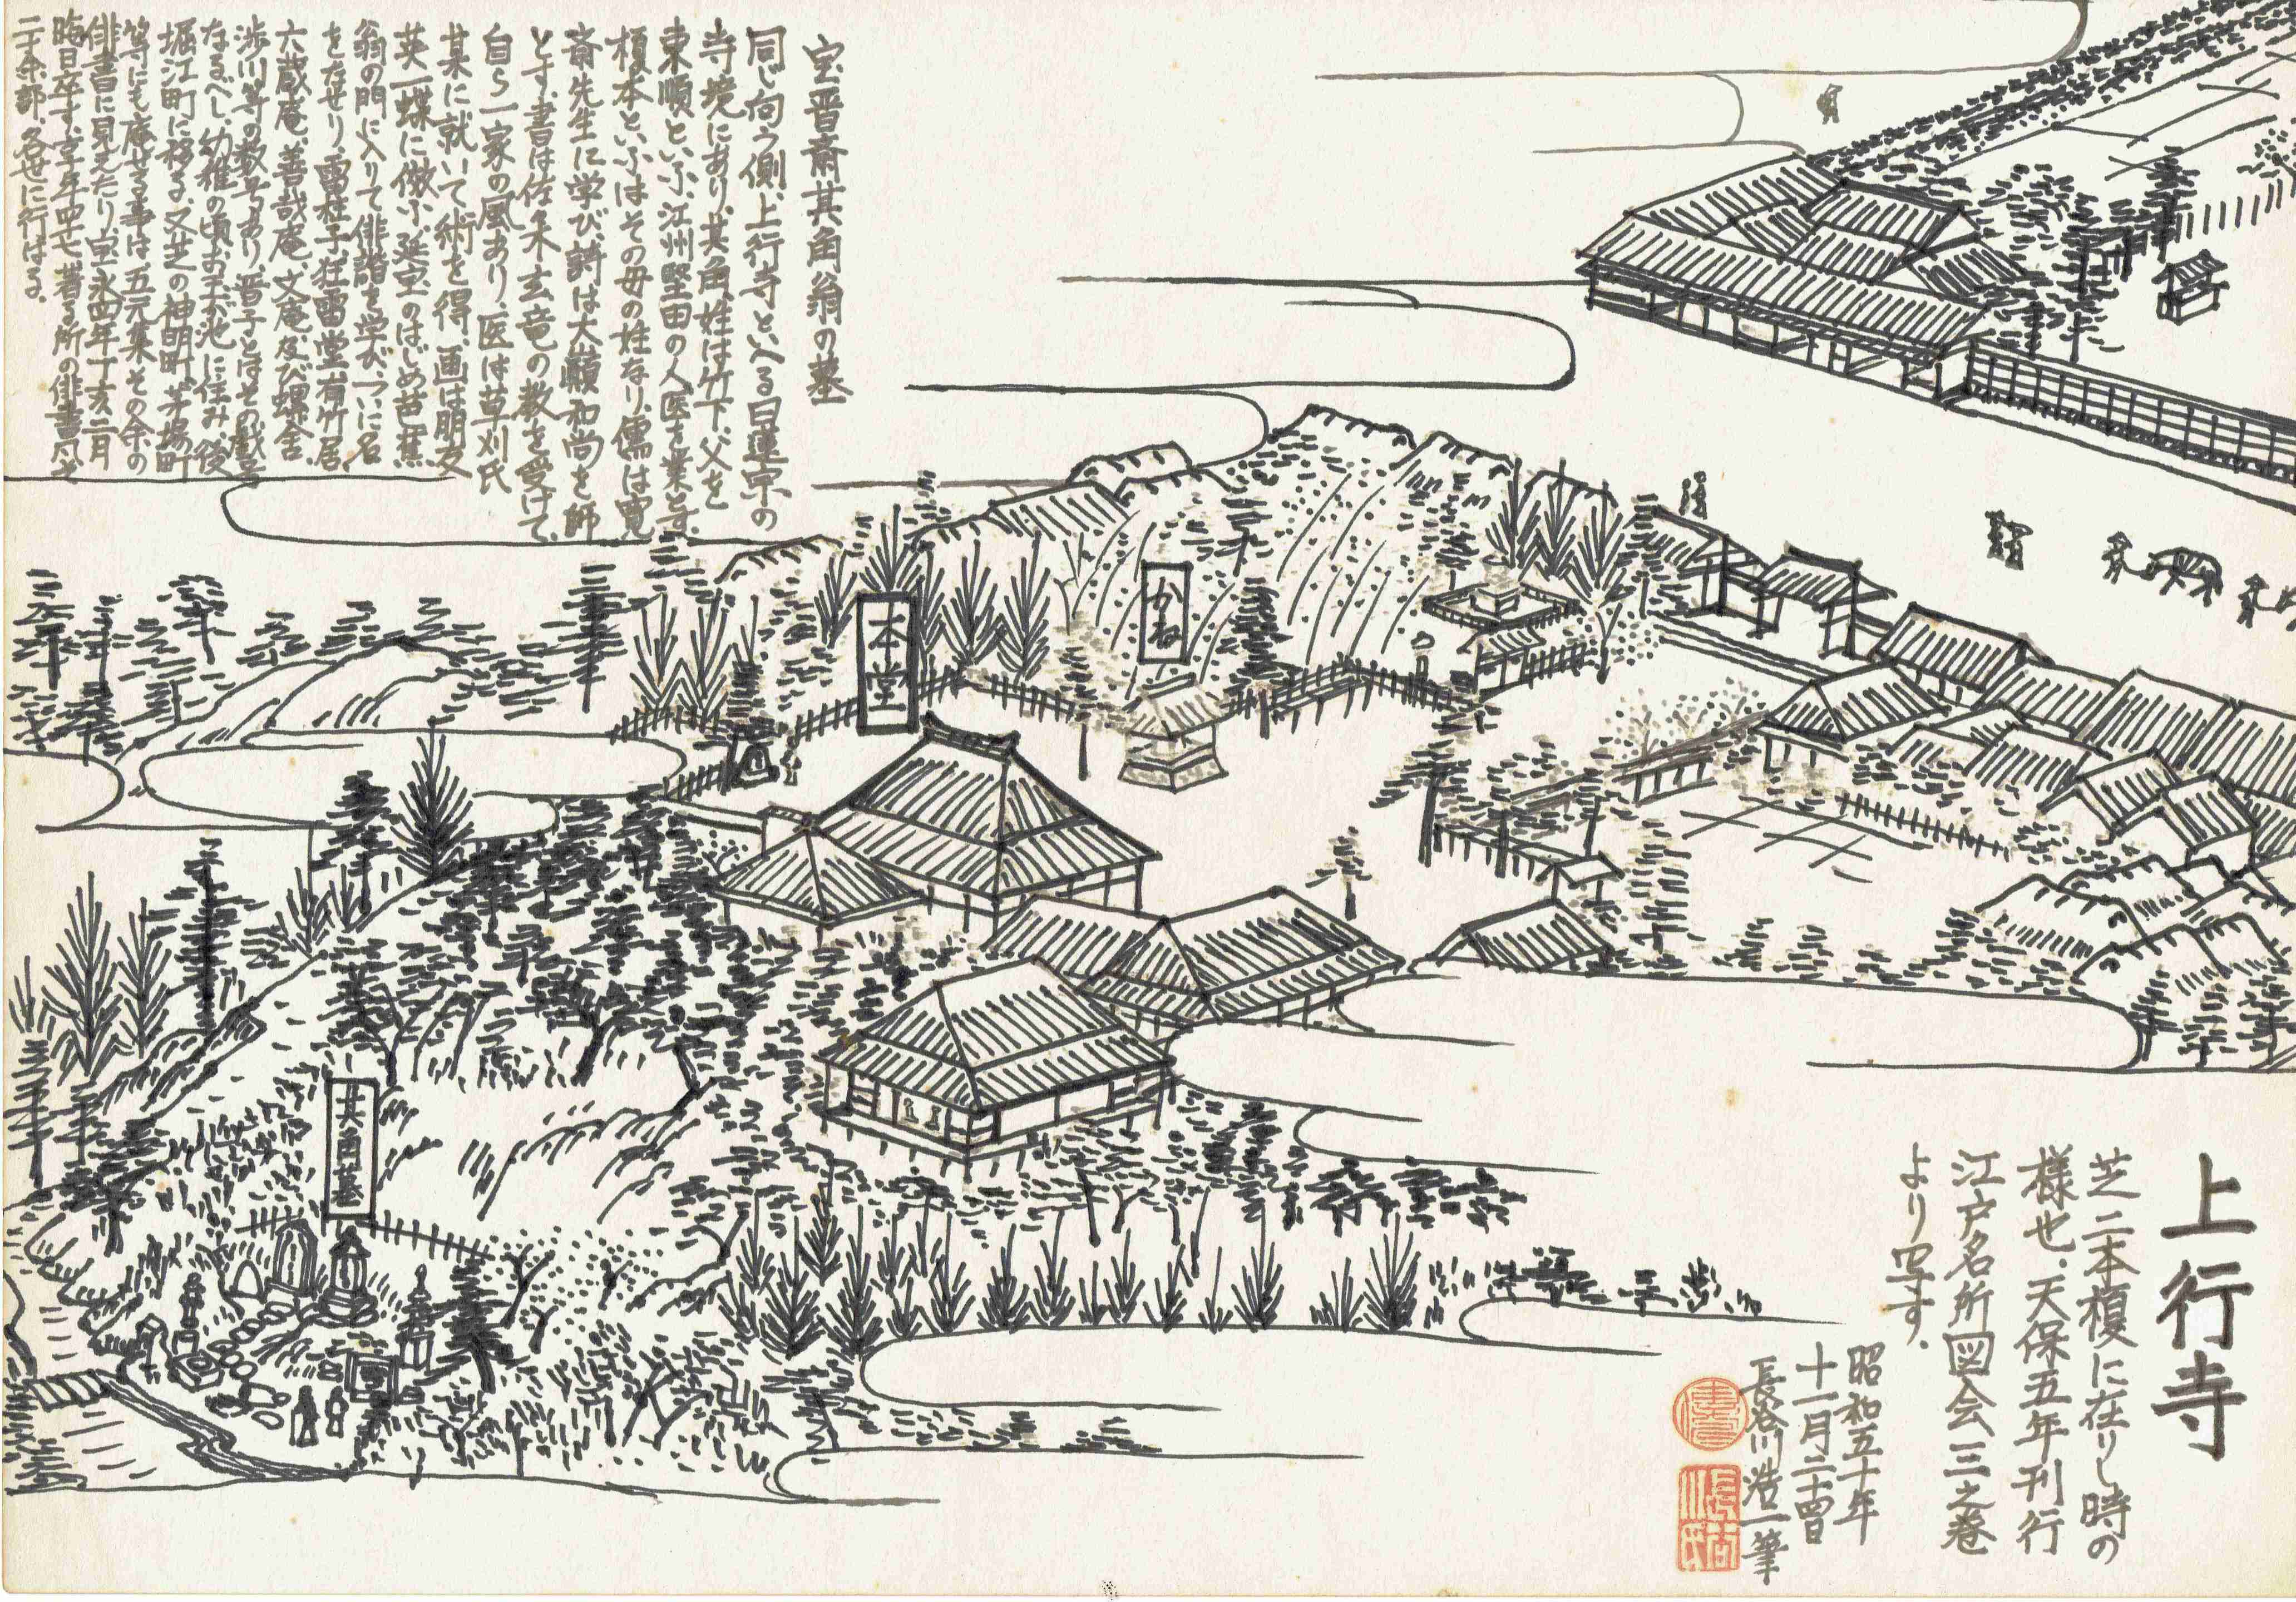 宝晋斎其角翁の墓
同じ向う側、上行寺といへる日蓮宗の
寺境にあり、其角、姓は竹下、父を
東順といふ、江州堅田の人、医を業とす、
榎本といふはその母の姓なり、儒は寛
斎先生に学び、詩は大巓和尚を師
とす、書は佐々木玄竜の教を受けて、
自ら一家の風あり、医は草刈氏
某に就いて術を得、画は朋友
英一蝶に倣ふ、延宝のはじめ芭蕉
翁の門に入りて俳諧を学び、つひに名
をなせり、雷柱子、狂雷堂、有竹居、
六蔵庵、善哉庵、文庵、及び螺舎、
渉川等の数号あり、晋子とはその戯号
なるべし、幼稚の頃お玉が池に住み、後
堀江町に移る、又芝の神明町、茅場町
等にも庵せる事は五元集その余の
俳書に見えたり、宝永四年丁亥二月
晦日卒す、享年四十七、著る所の俳書凡そ
二十余部、各世に行はる。
本堂
かね
其角墓
上行寺
芝二本榎に在りし時の
様也、天保五年刊行
江戸名所図会三之巻
より写す。
昭和五十年
十一月二十四日
長谷川浩一筆